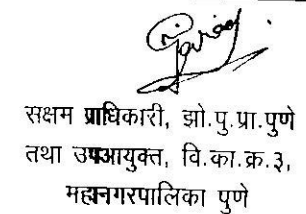 सक्षम प्राधिकारी, झो.पु.प्रा.पुणे
तथा उपआयुक्त, वि.का.क्र.३,
महानगरपालिका पुणे